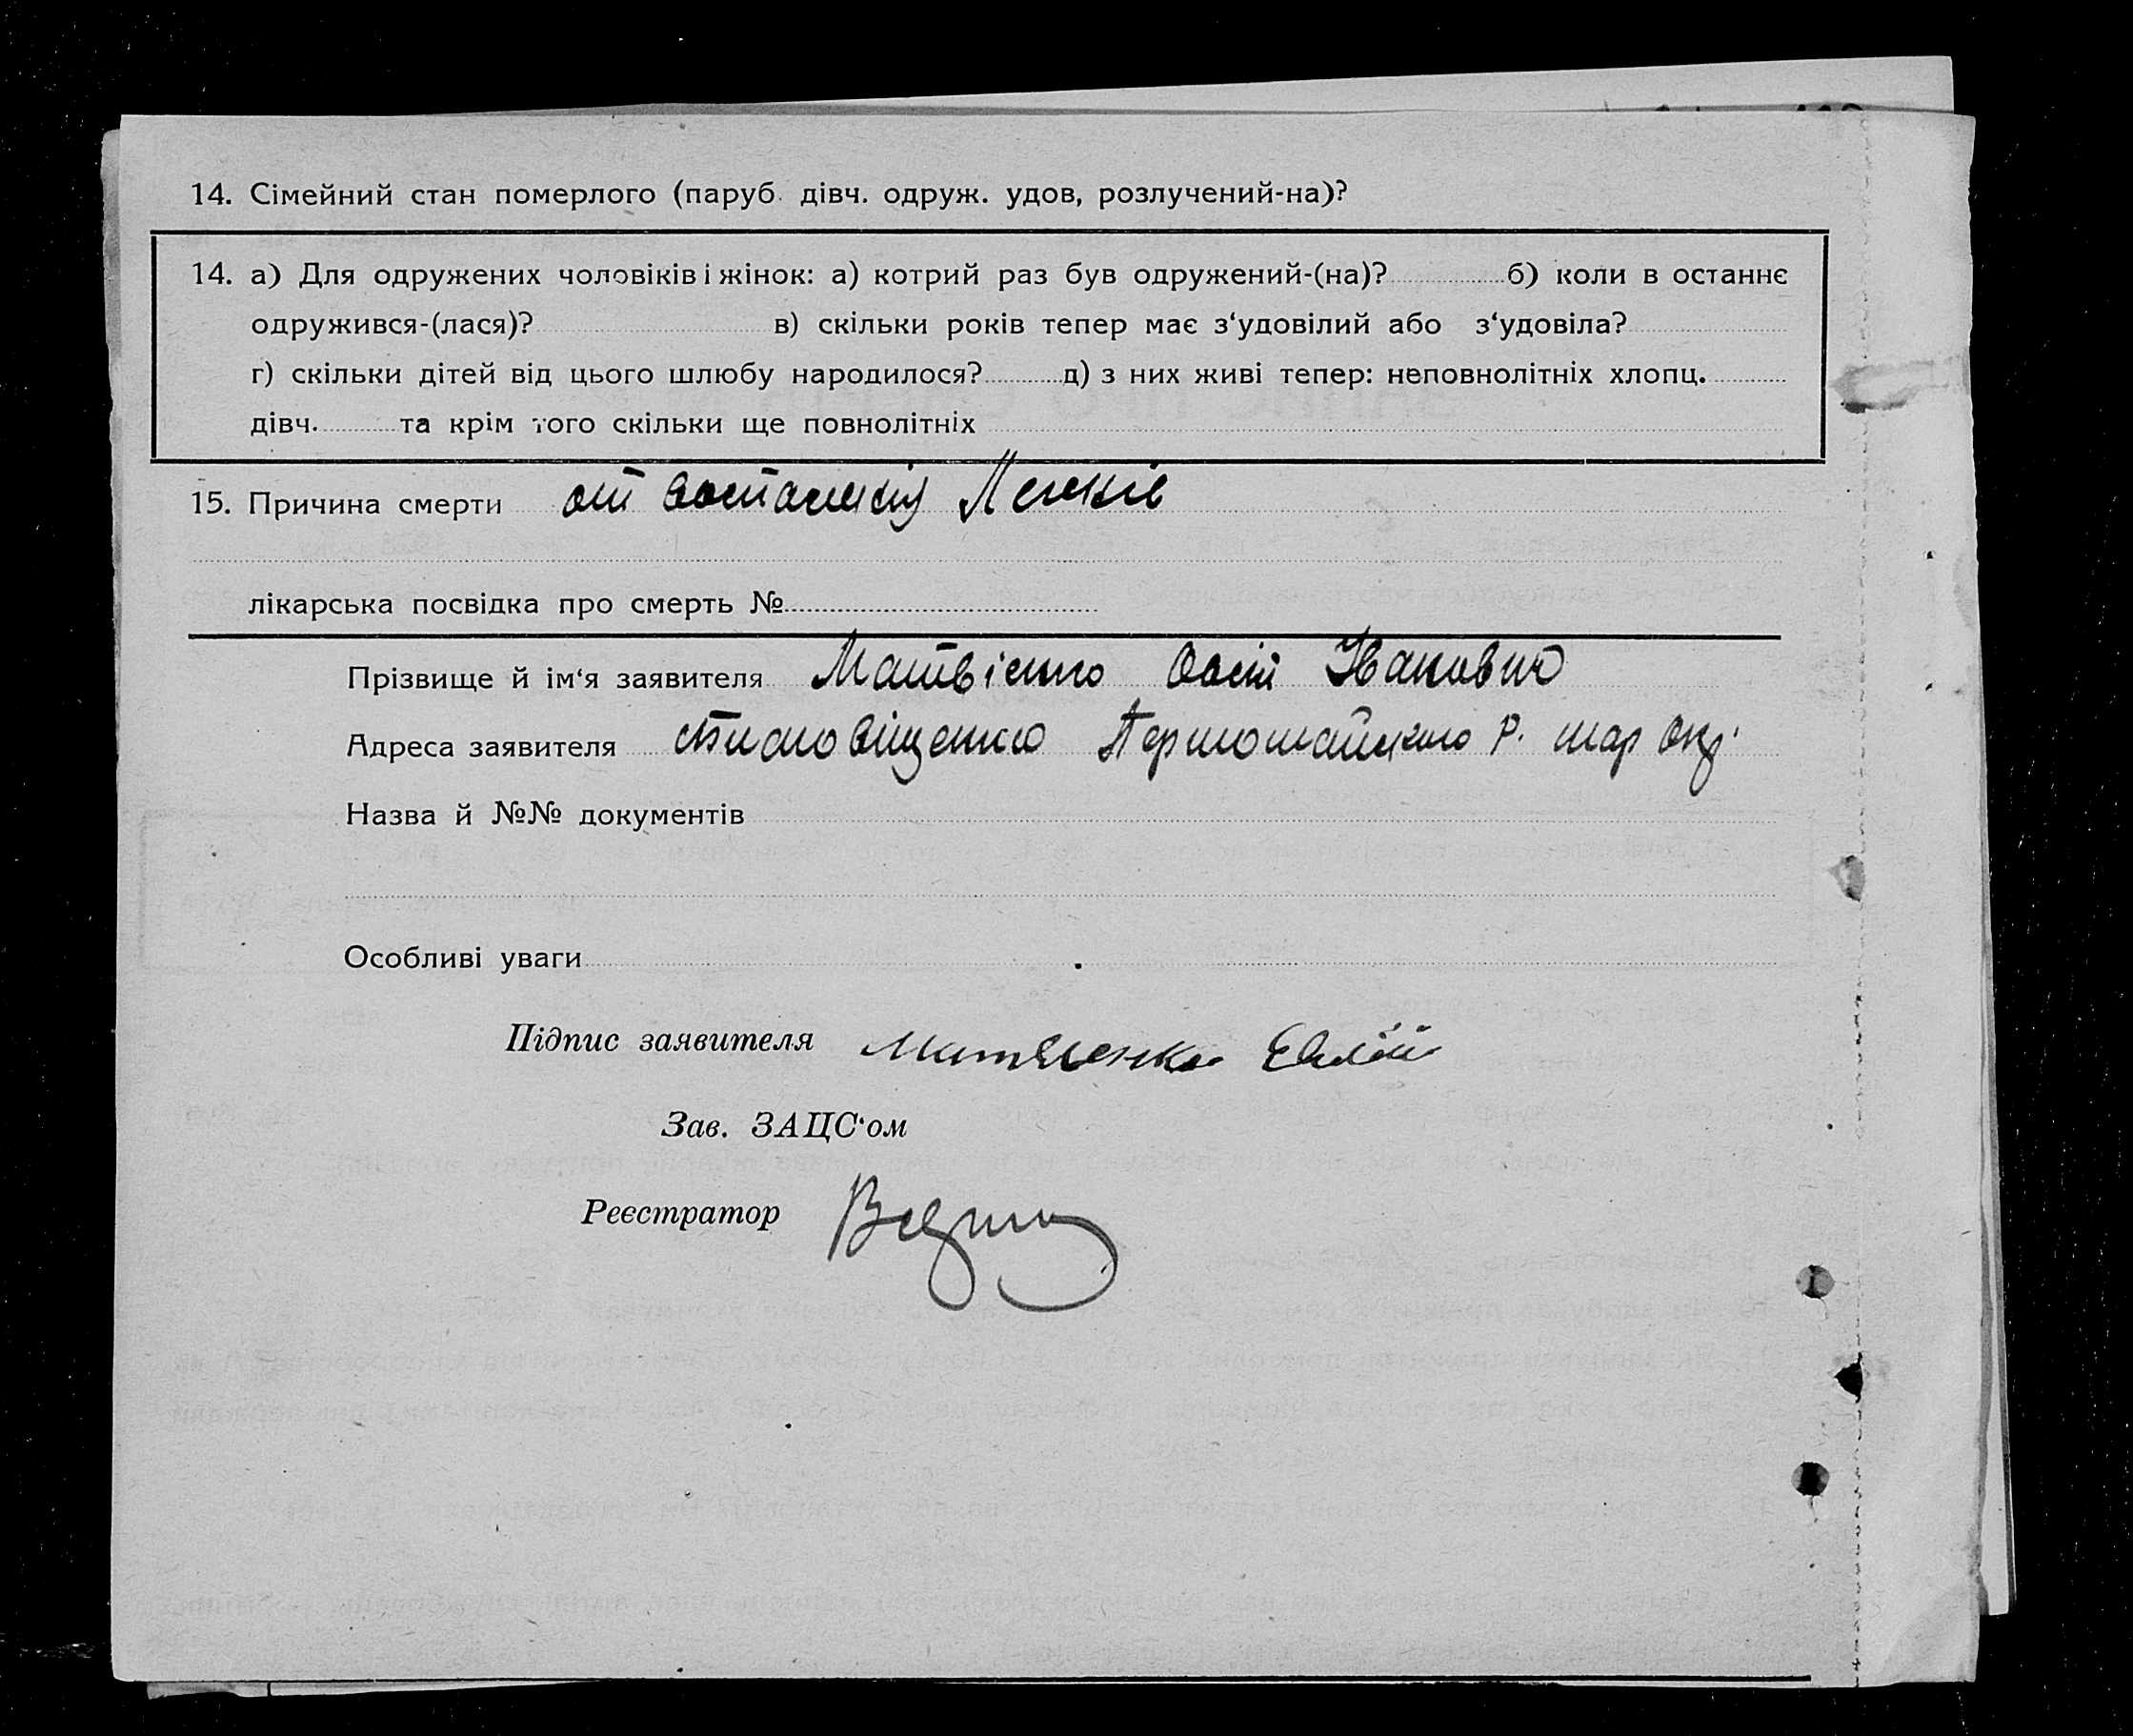 14. Сімейний стан померлого (паруб. дівч. одруж. удов, розлучений-на)?
14. а) Для одружених чоловіків і жінок: а) котрий раз був одружений-(на)? б) коли в останнє
одружився-(лася)? в) скільки років тепер має з‘удовілий або з‘удовіла?
г) скільки дітей від цього шлюбу народилося? д) з них живі тепер: неповнолітніх хлопц.
дівч. та крім того скільки ще повнолітніх
15. Причина смерти от Легків
лікарська посвідка про смерть №
Прізвище й ім‘я заявителя Матвієнко Овсій Іванович
Адреса заявителя Первомайського Р. мар окр.
Назва й №№ документів
Особливі уваги
Підпис заявителя Матвіенко
Зав. ЗАЦС‘ом
Реєстратор